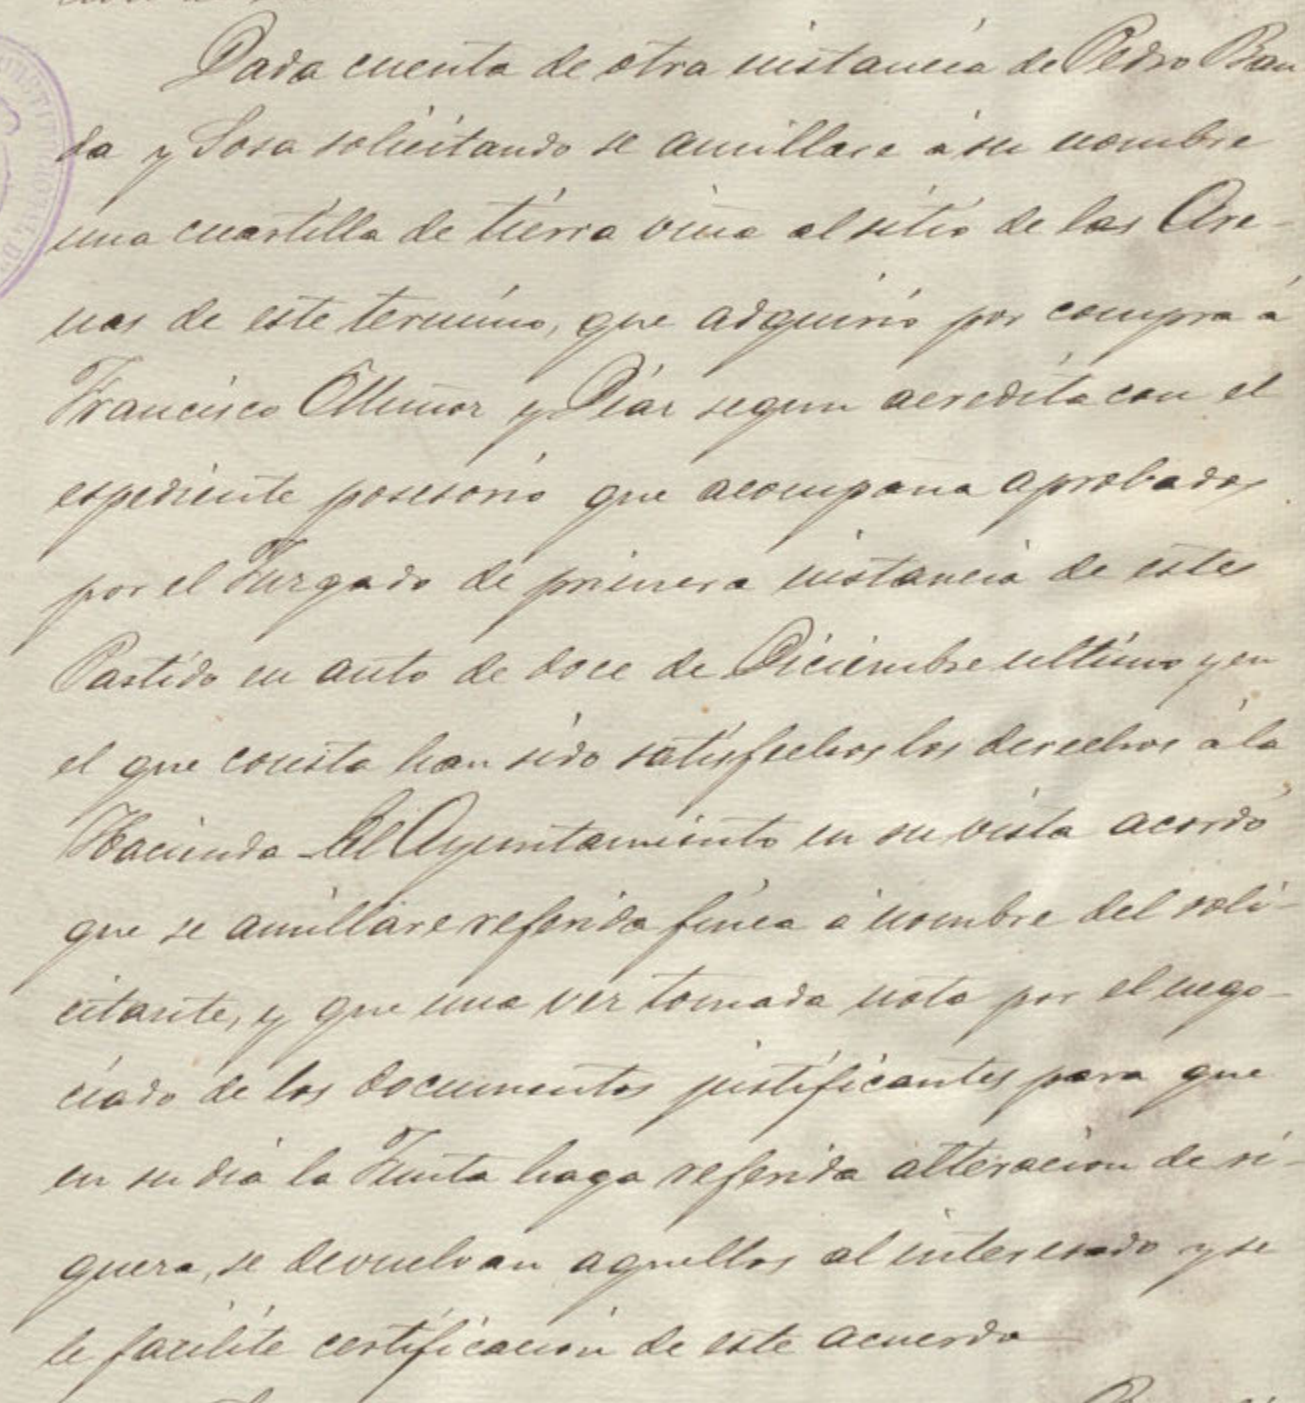 Dada cuenta de otra instancia de Pedro Ban
da y Sosa solicitando se amillare á su nombre
una cuartilla de tierra viña al sitio de las Are-
nas de este termino, que adquirió por compra á
Francisco Muñoz y Diaz segun acredita con el
espediente posesorio que acompaña aprobado
por el Juzgado de primera instancia de este
Partido en auto de doce de Diciembre ultimo y en
el que consta han sido satisfechos los derechos á la
Hacienda - El Ayuntamiento en su vista acordó
que se amillare referida finca á nombre del soli-
citante, y que una vez tomada nota por el nego-
ciado de los documentos justificantes para que
en su dia la Junta haga referida alteracion de ri-
queza, se devuelvan aquellos al interesado y se
le facilite certificacion de este acuerdo